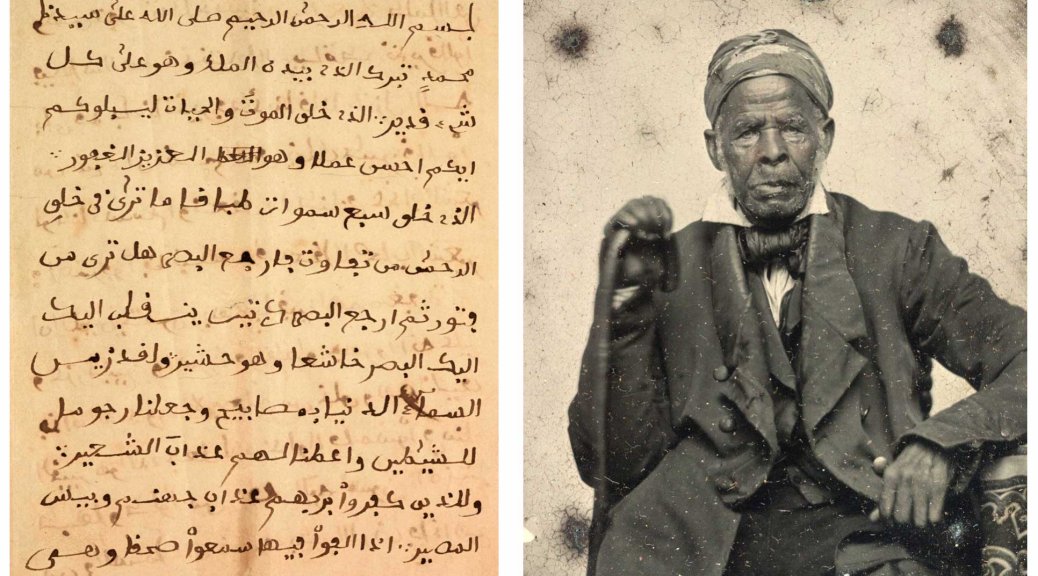 بسم الله الرحمن الرحيم صلى الله على سيدنا
محمد تبرك الذي بيده الملك وهو على كل
شيء قدير الذي خلق الموت والحيات ليبلوكم
ايكم احسن عملا وهو العزيز الغفور
الذي خلق سبع سموات طباقا ما ترى في خلق
الرحمن من تفاوت فارجع البصر هل ترى من
فتور ثم ارجع البصر ينقلب اليك
اليك البصر خاشعا وهو حشير ولقد زين
السماء الدنيا بمصابيح وجعلنا رجوما
للشيطين واعطنا لهم عذاب الشعير
وللذين كفروا بربهم عذاب جهنم وبيس
المصير اذا القوا فيها سمعوا وهي